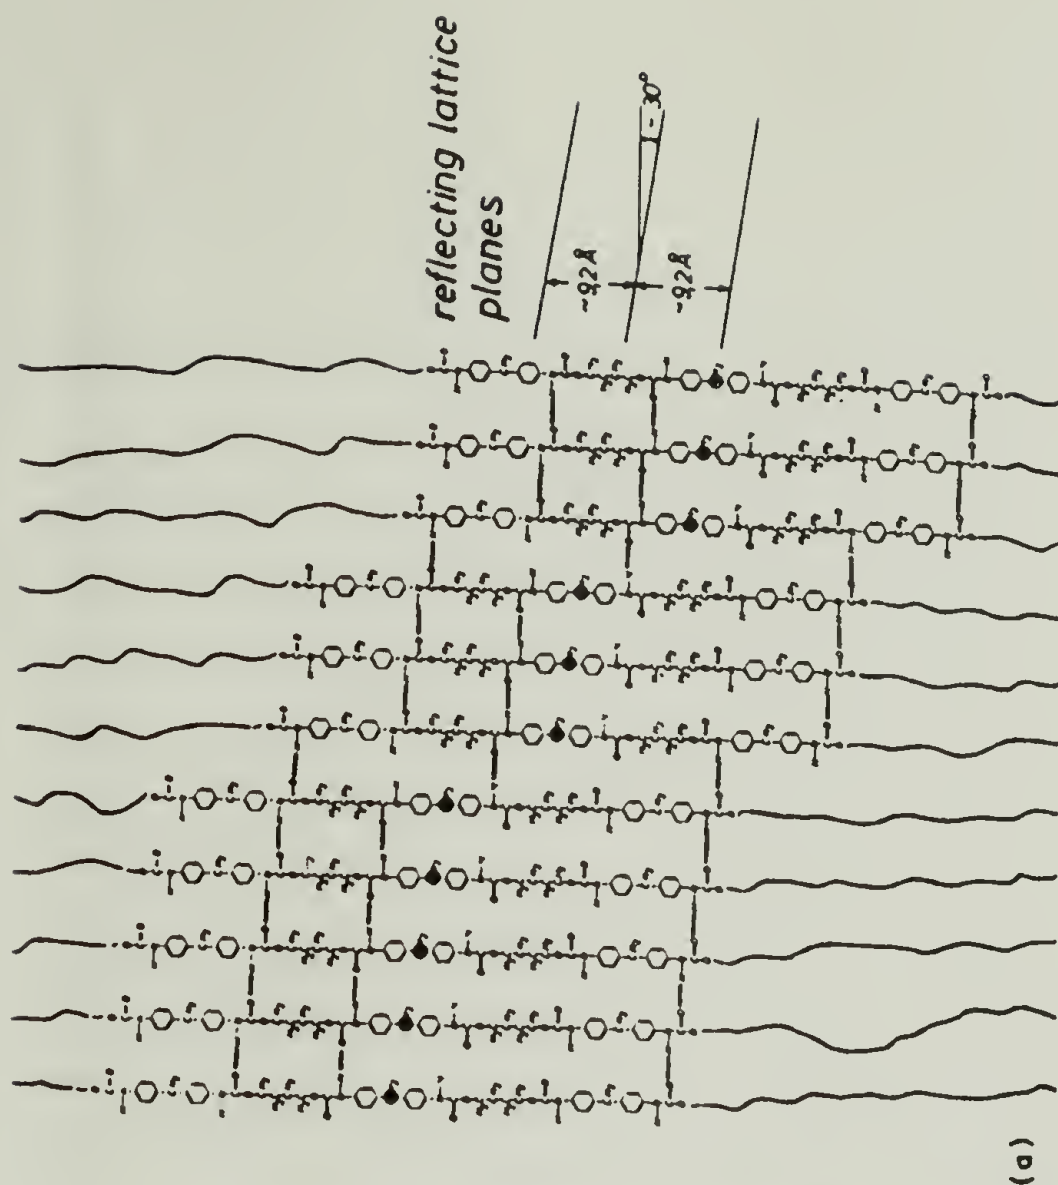 reflecting lattice
planes
~9.2Å
~9.2Å
~30°
(a)